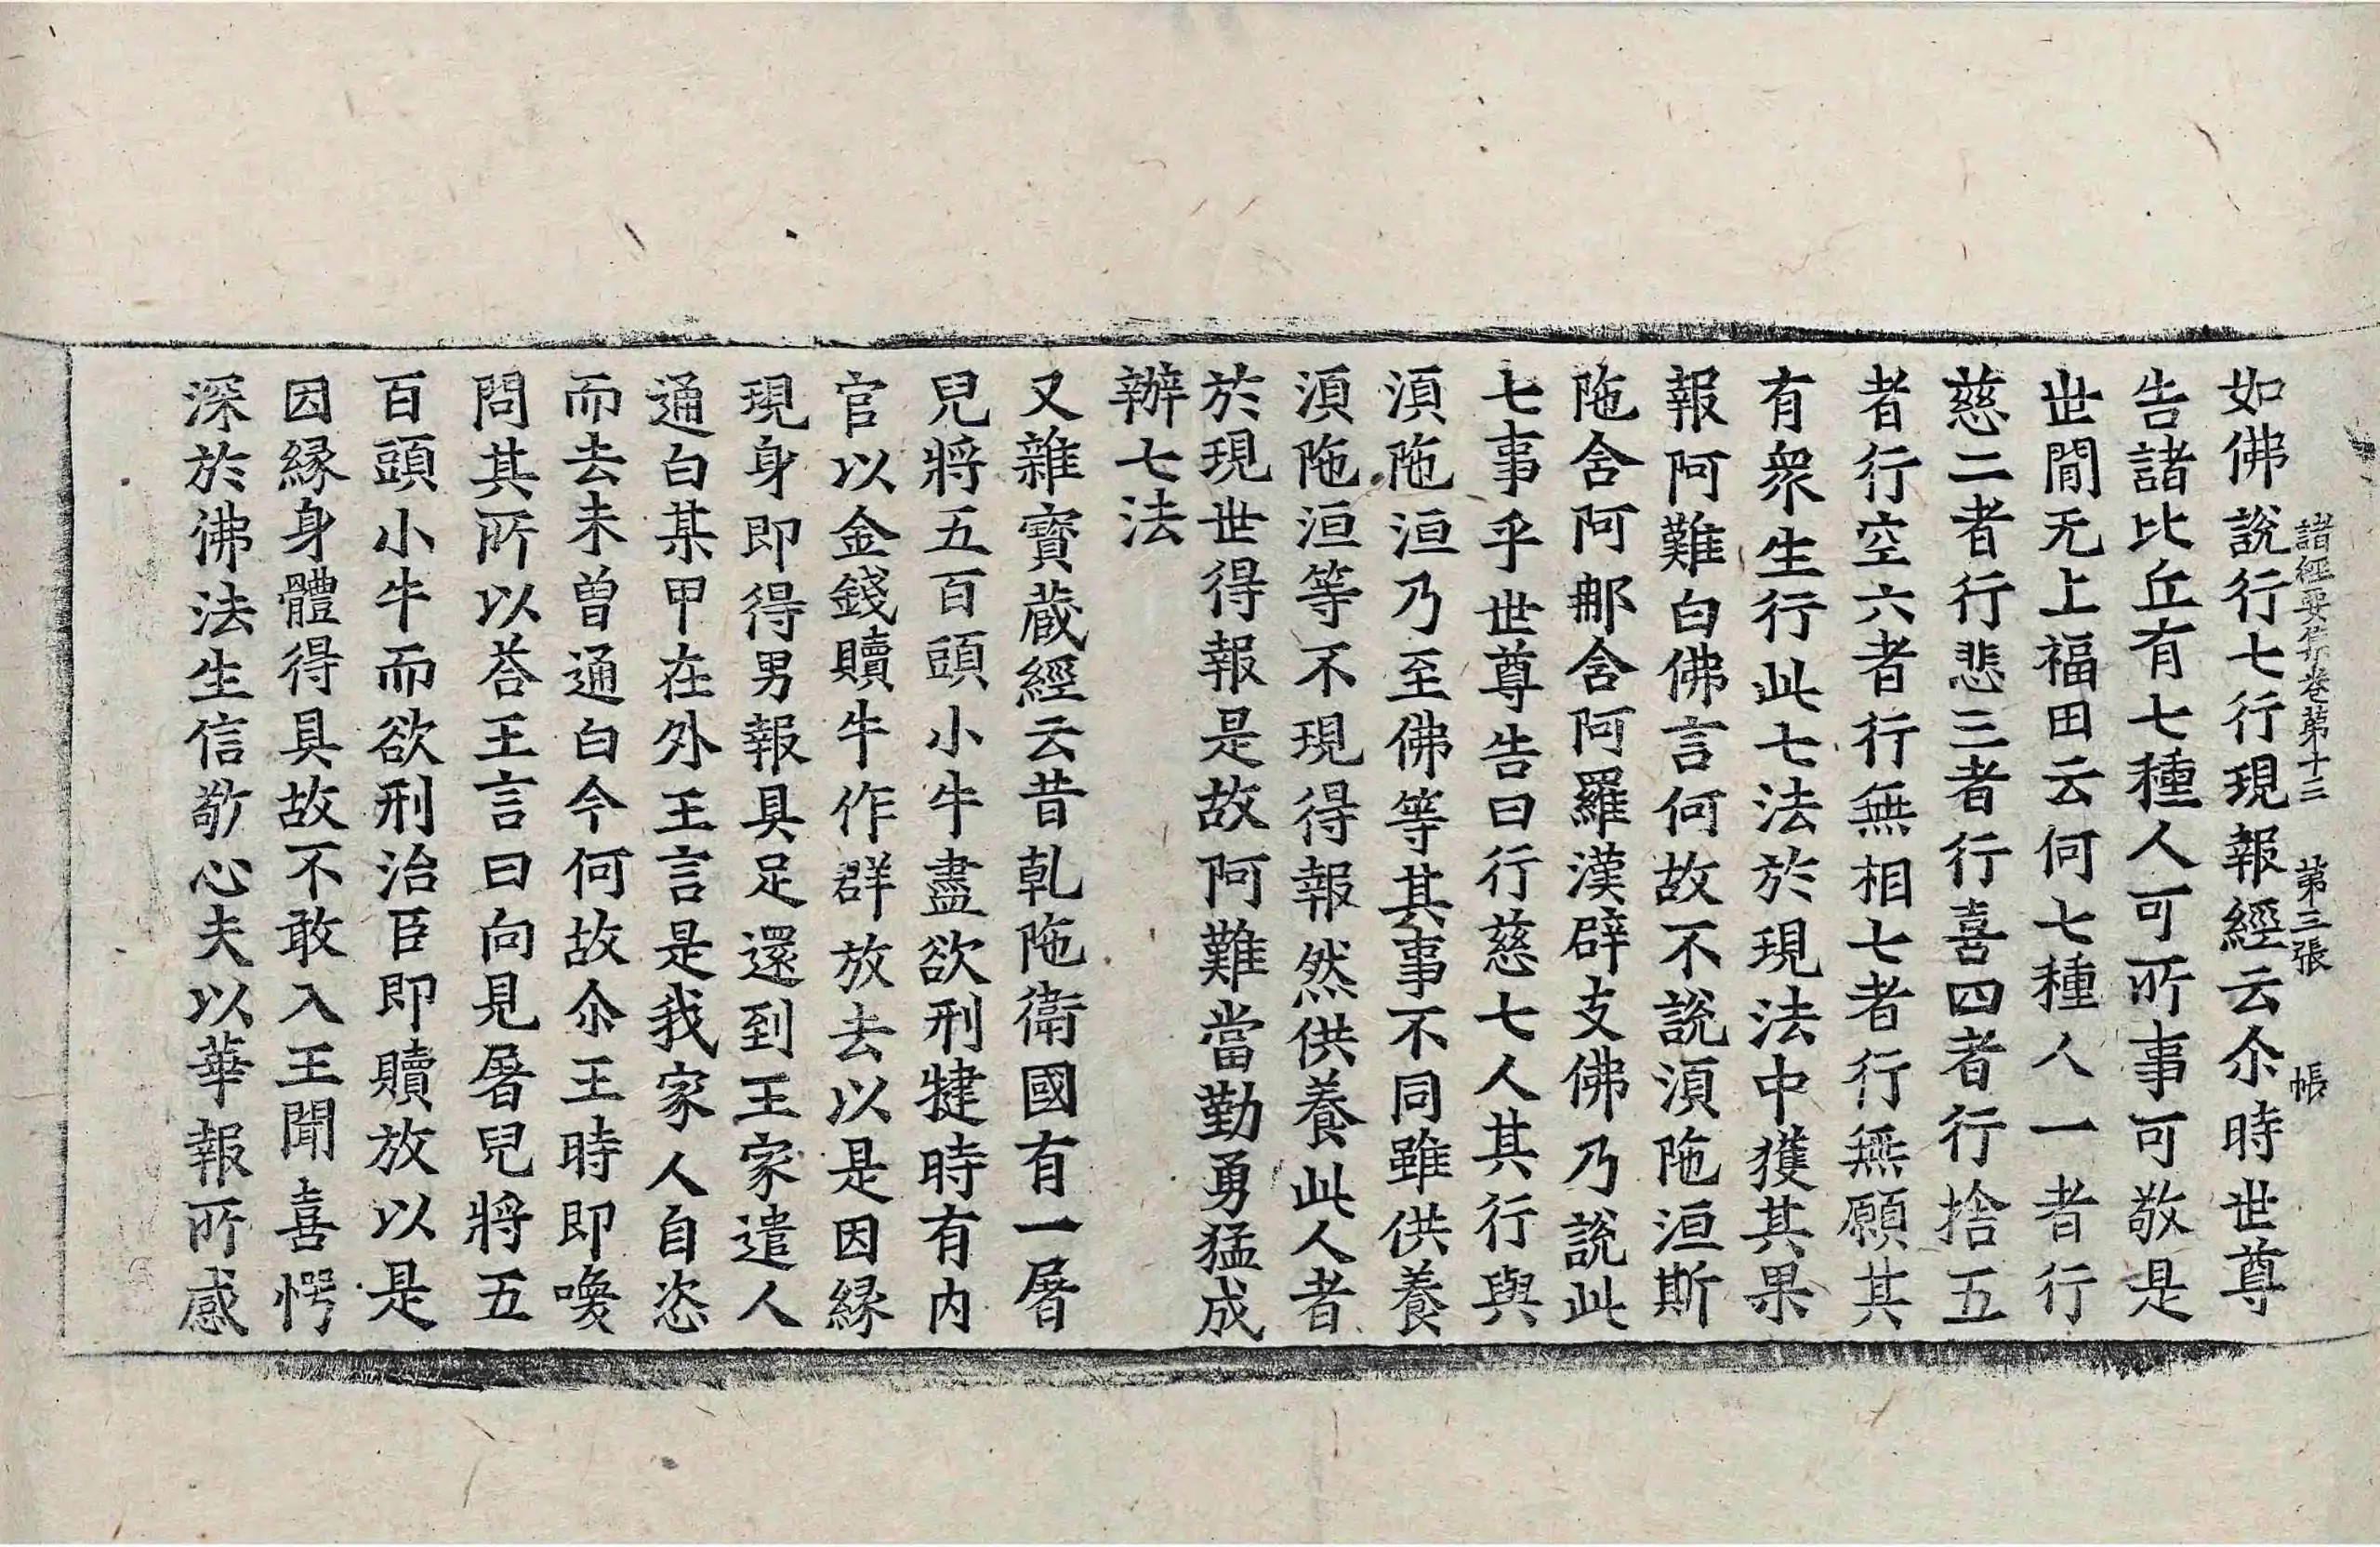 諸經要集卷第十三 第三張 帳
如佛說行七行現報經云尒時世尊
告諸比丘有七種人可所事可敬是
世閒无上福田云何七種人一者行
慈二者行悲三者行喜四者行捨五
者行空六者行無相七者行無願其
有衆生行此七法於現法中獲其果
報阿難白佛言何故不說湏陁洹斯
陁含阿那含阿羅漢辟支佛乃說此
七事乎世尊告曰行慈七人其行與
湏陁洹乃至佛等其事不同雖供養
湏陁洹等不現得報然供養此人者
於現世得報是故阿難當勤勇猛成
辦七法
又雜寳蔵經云昔乹陁衛國有一屠
兒將五百頭小牛盡欲刑犍時有内
官以金錢贖牛作群放去以是因緣
現身即得男報具足還到王家遣人
通白某甲在外王言是我家人自恣
而去未曽通白今何故尒王時即喚
問其所以荅王言曰向見屠兒將五
百頭小牛而欲刑治臣即贖放以是
因緣身體得具故不敢入王聞喜愕
深於佛法生信敬心夫以華報所感